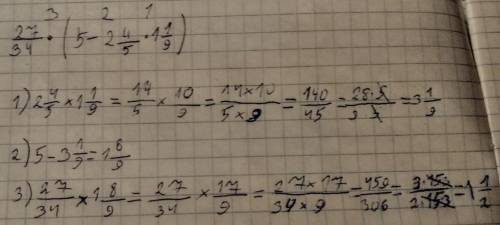 3 2 1
27/34 · (5 - 2 4/5 · 1 1/9)
1) 2 4/5 × 1 1/9 = 14/5 × 10/9 = 14×10/5×9 = 140/45 = 28·5/9 · = 3 1/9
2) 5 - 3 1/9 = 1 8/9
3) 27/34 × 1 8/9 = 27/34 × 17/9 = 27×17/34×9 = 459/306 = 3·153/2·153 = 1 1/2